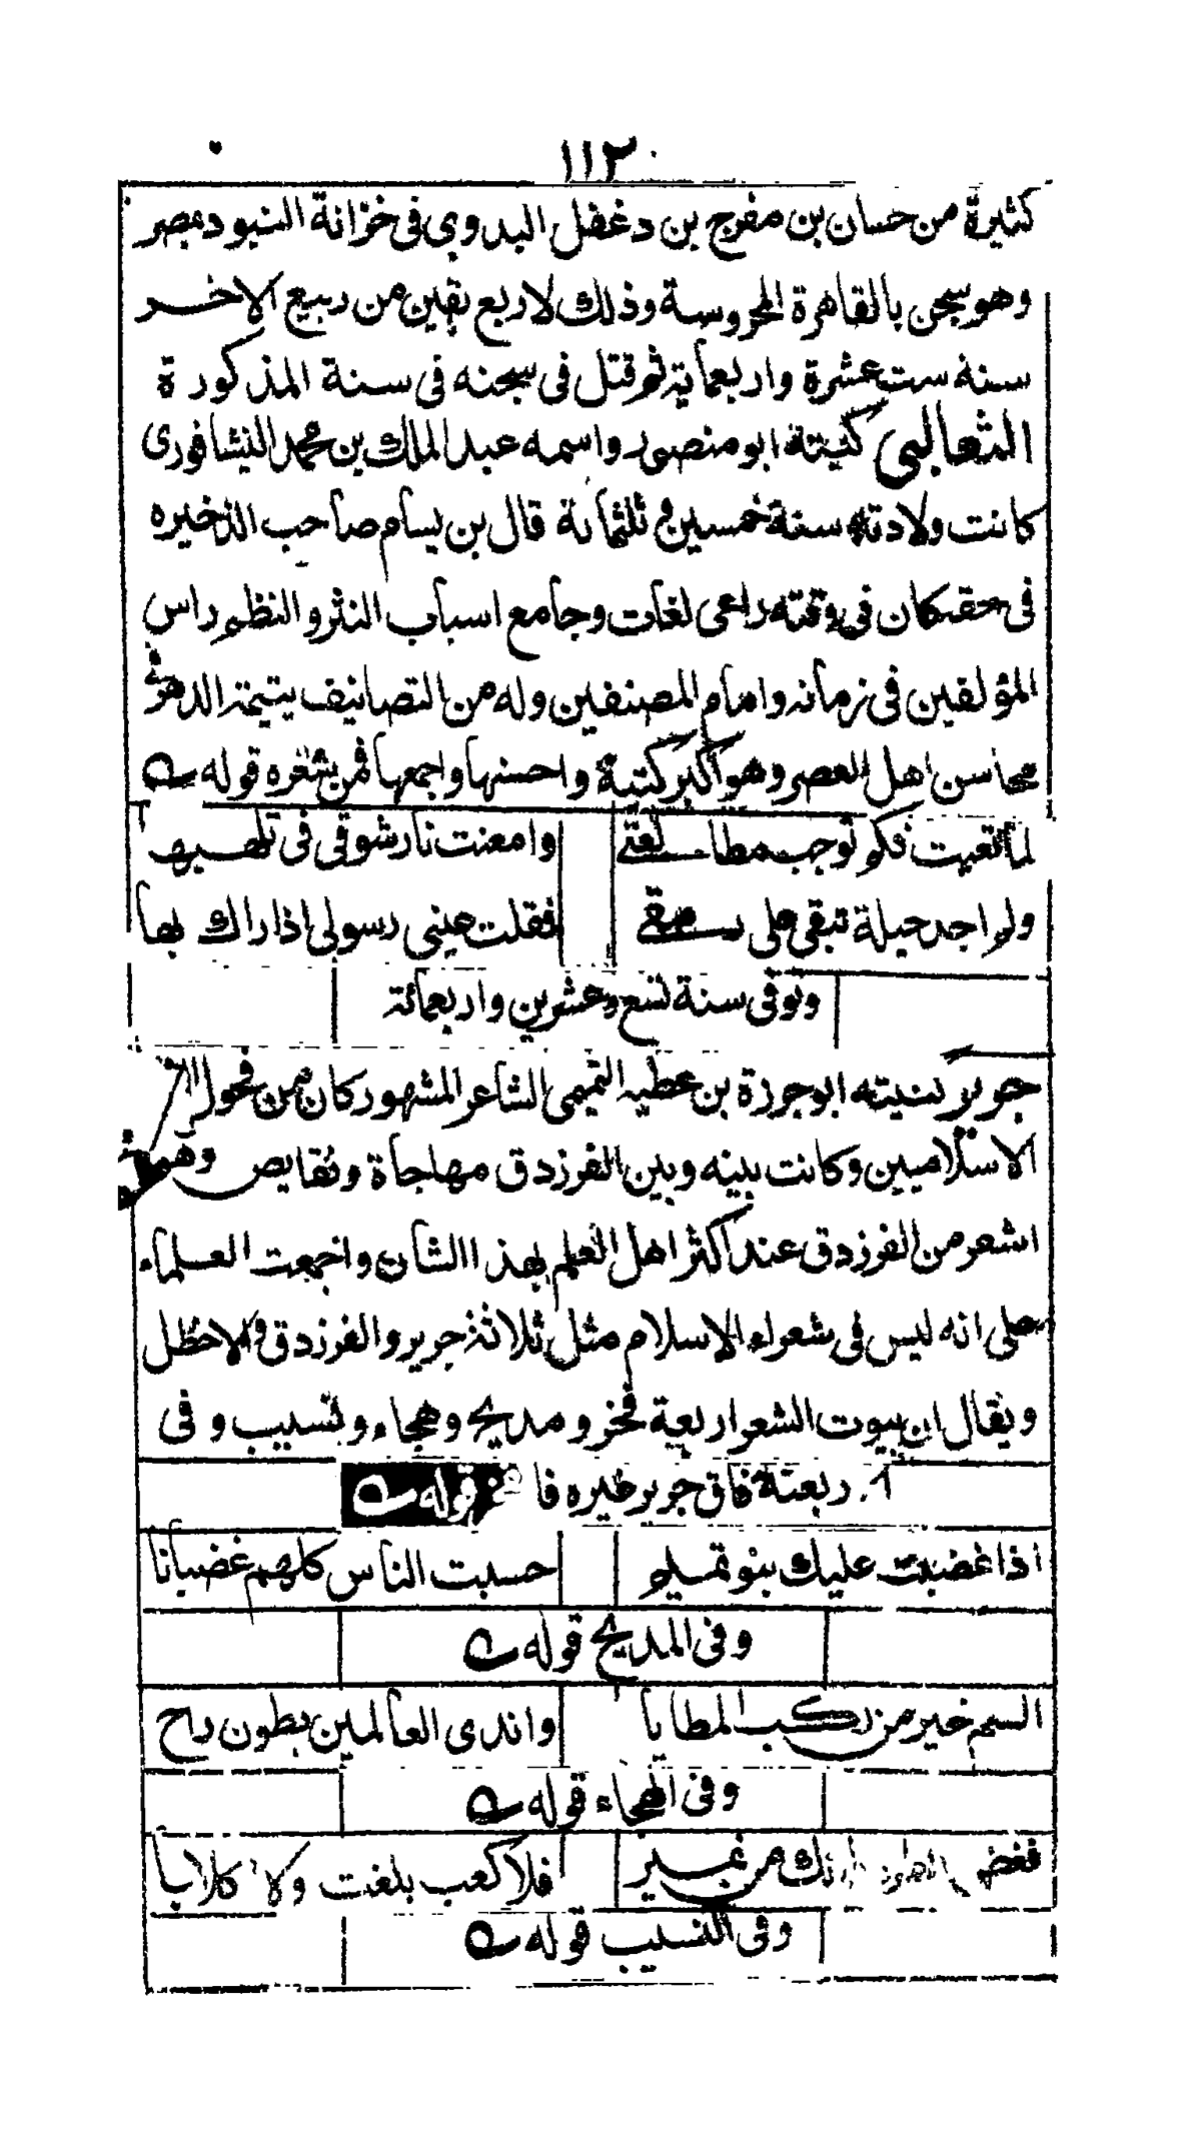 ١١٢
كثيرة من حسان بن مفرج بن دغفل البدوي فى خزانة البنود بمصر
وهو سجن بالقاهرة المحروسة وذلك لاربع بقين من ربيع الاخر
سنة ست عشرة واربعماية ثم قتل فى سجنه فى سنة المذكورة
الثعالبى كنيته ابو منصور واسمه عبد الملك بن محمد النيشافورى
كانت ولادته سنة خمسين و ثلثمائة قال بن بسام صاحب الذخيره
فى حقه كان فى وقته راعى لغات وجامع اسباب النثر والنظم راس
المؤلفين فى زمانه وامام المصنفين وله من التصانيف يتيمة الدهر فى
محاسن اهل العصر وهو اكبر كتبه واحسنها واجمعها فمن شعره قوله
لما تعبت فلم توجب مطالعتى
وامعنت نار شوقى فى تلهبها
ولم اجد حيلة تبقى على رمقى
فقلت عينى رسولى اذا راك بها
وتوفى سنة تسع وعشرين واربعمائة
جرير كنيته ابو جرزة بن عطيه التميمى الشاعر المشهور كان من فحول
الاسلاميين وكانت بينه وبين الفرزدق مهاجاة ونقايص وهو
اشعر من الفرزدق عند اكثر اهل العلم بهذا الشان واجمعت العلماء
على انه ليس فى شعراء الاسلام مثل ثلاثة جرير والفرزدق والاخطل
ويقال ان بيوت الشعر اربعة فخر و مديح وهجاء ونسيب و فى
ربعته فاق جرير غيره فا قوله
اذا غضبت عليك بنو تميم
حسبت الناس كلهم غضبانا
وفى المديح قوله
الستم خير من ركب المطايا
واندى العالمين بطون راح
وفى الهجاء قوله
فغض من نمير
فلا كعب بلغت ولا كلابا
وفى النسيب قوله